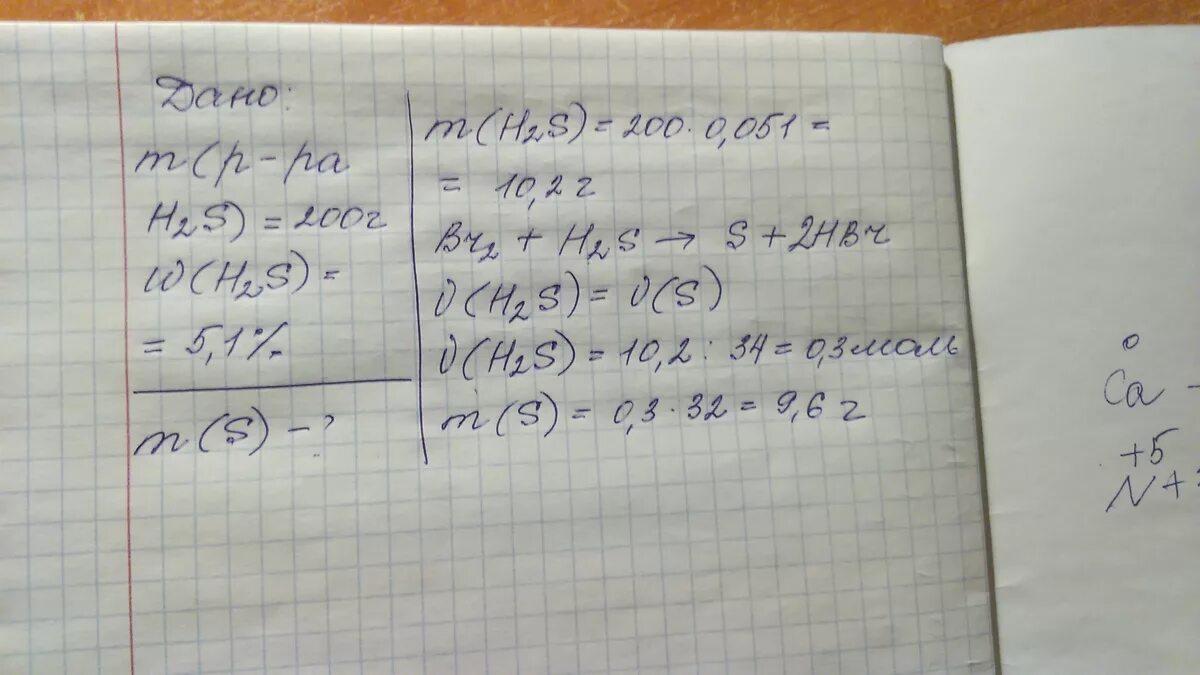 Дано:
m(р-ра
H₂S) = 200г
w(H₂S) =
= 5,1%
m(S) - ?
m(H₂S) = 200 · 0,051 =
= 10,2 г
Br₂ + H₂S → S + 2HBr
ν(H₂S) = ν(S)
ν(H₂S) = 10,2 : 34 = 0,3 моль
m(S) = 0,3 · 32 = 9,6 г
0
Ca -
+5
N +